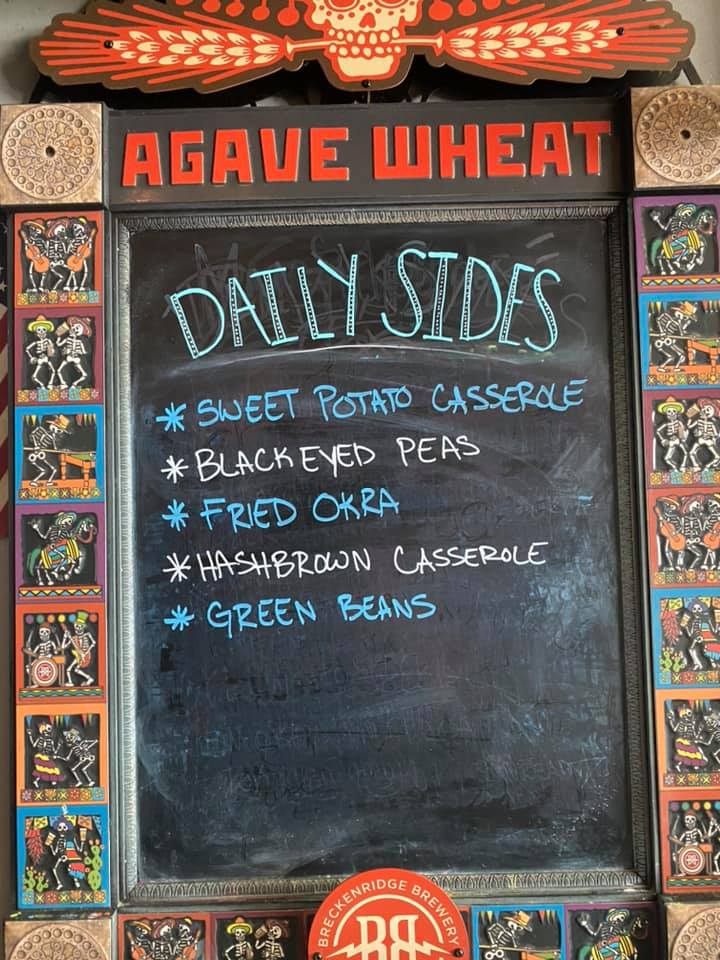 AGAVE WHEAT
DAILY SIDES
* SWEET POTATO CASSEROLE
* BLACK EYED PEAS
* FRIED OKRA
* HASHBROWN CASSEROLE
* GREEN BEANS
BRECKENRIDGE BREWERY
BB